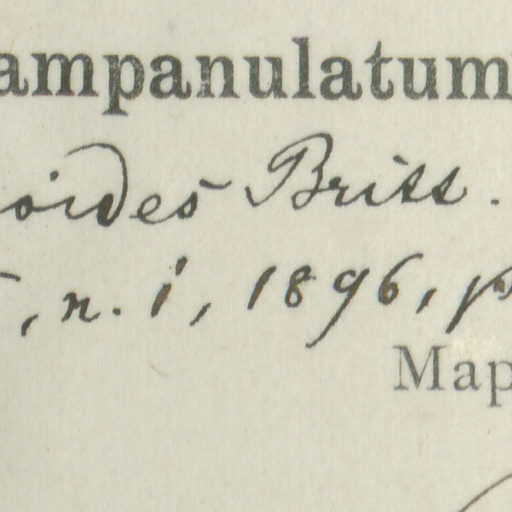 ampanulatum
oides Britt.
, n. i, 1896, p
Map